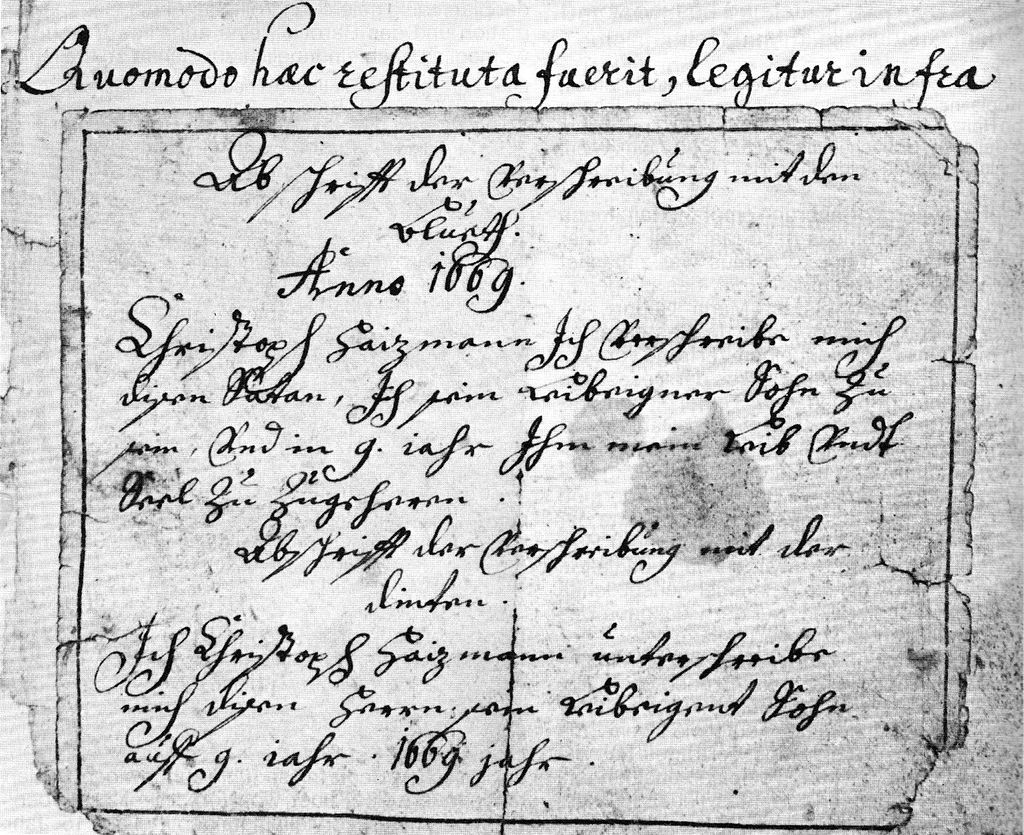 Quomodo hæc restituta fuerit, legitur infra
Abschrifft der Verschreibung mit den
blueth.
Anno 1669.
Christoph Haizmann Ich Verschreibe mich
disen Satan, Ich sein Leibeigner Sohn Zu
sein, Vnd in 9. iahr Ihm mein Leib Vndt
Seel Zu Zugeheren.
Abschrifft der Verschreibung mit der
dinten.
Ich Christoph Haizmann unterschreibe
mich disen Herrn sein Leibeigent Sohn
auff 9. iahr. 1669 jahr.